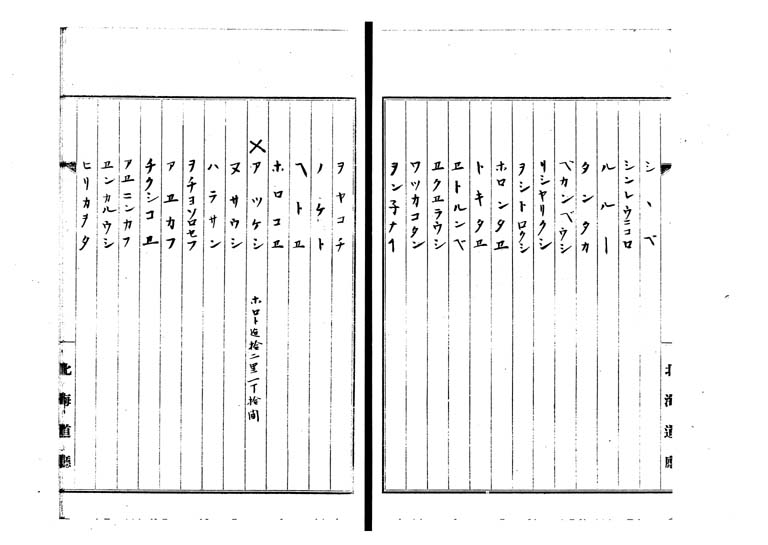 シヽベ
シンレウニコロ
ルルー
タンタカ
ベカンベウシ
リシヤリクシ
ヲシトロクシ
ホロンタヱ
トキタヱ
ヱトルンベ
ヱクヱラウシ
ワツカコタン
ヲン子ナイ
北海道廳
ヲヤコチ
ノケト
ヘトヱ
ホロコヱ
✕アツケシ ホロト迄拾二里一丁拾間
ヌサウシ
ハラサン
ヲチヨソロセフ
アヱカフ
チクシコヱ
アヱニンカフ
ヱンカルウシ
ヒリカヲタ
北海道廳